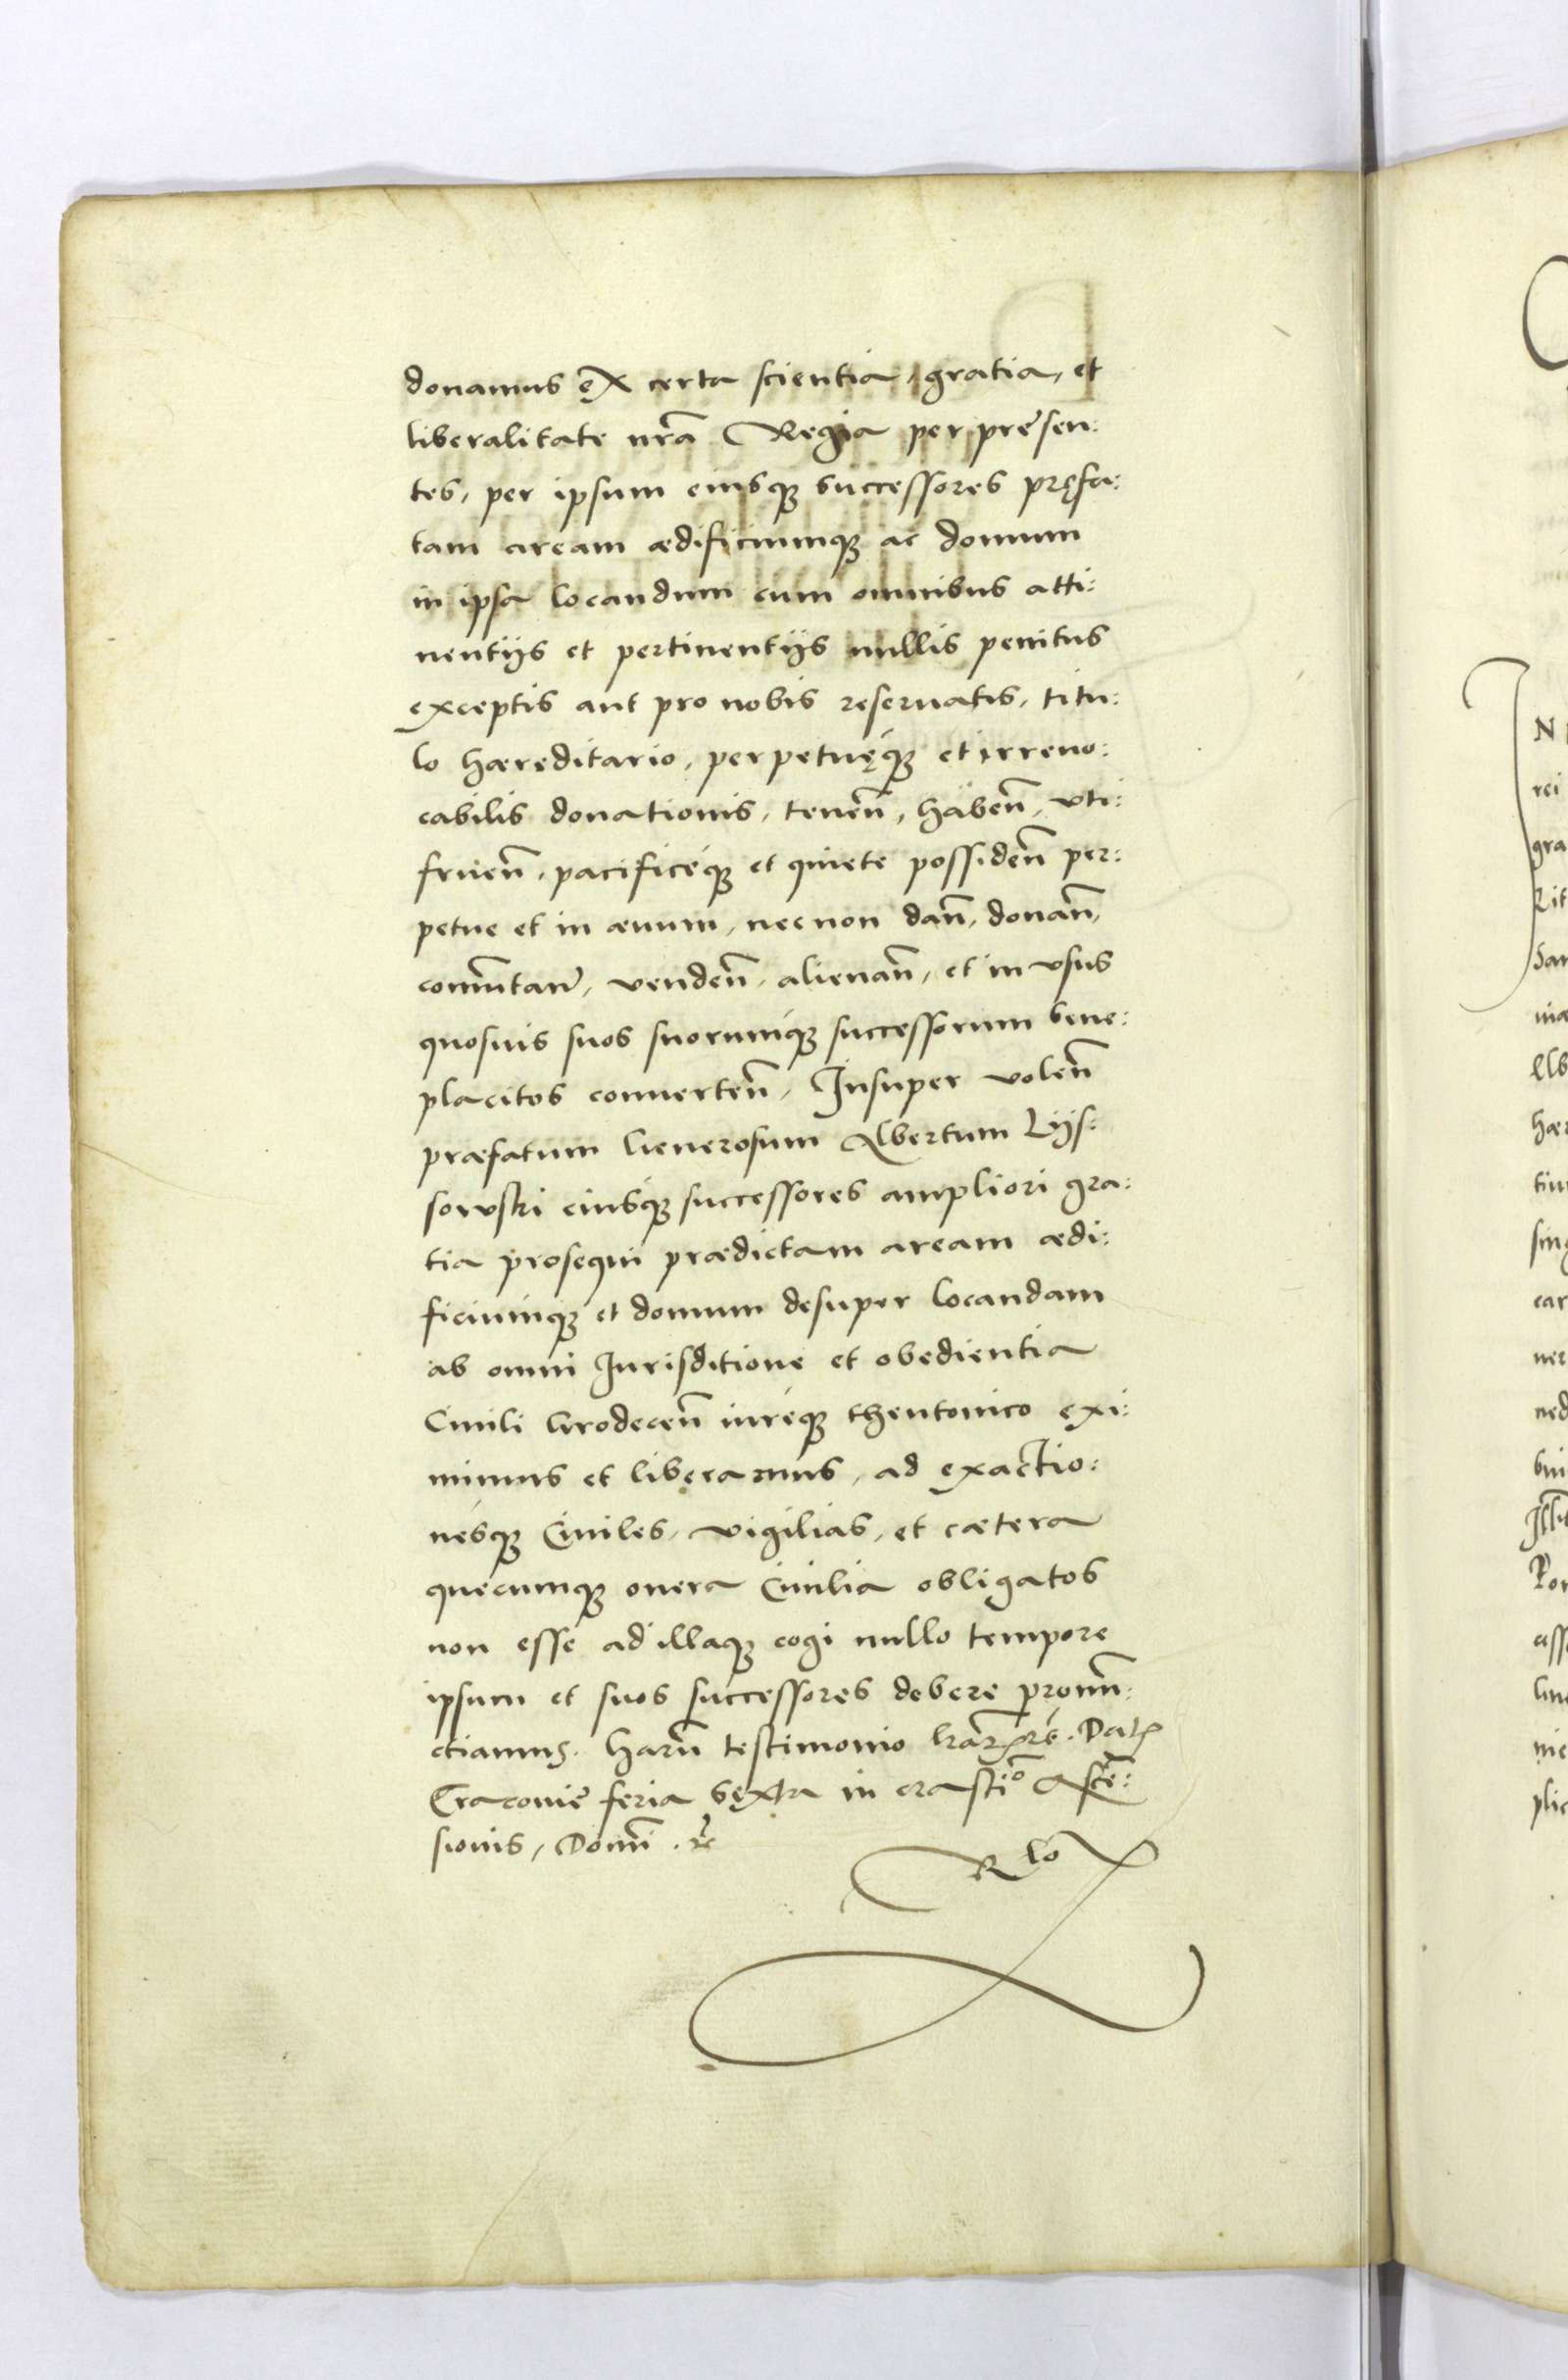 donamus ex certa scientia, gratia, et
liberalitate nrã Regia per presen:
tes, per ipsum eiusq; successores pręfa:
tam aream ædificiumq; ac domum
in ipsa locandum cum omnibus atti:
nentijs et pertinentijs nullis penitus
exceptis aut pro nobis reseruatis, titu:
lo hæreditario, perpetuęq; et irreuo:
cabilis donationis, tenen̄, haben̄, vti:
fruen̄, pacificeq; et quiete possiden̄ per:
petue et in æuum, necnon dan̄, donan̄,
com̄utan̄, venden̄, alienan̄, et in vsus
quosuis suos suorumq; successorum bene:
placitos conuerten̄, Insuper volen̄
præfatum Generosum Albertum Lijs:
sowski eiusq; successores ampliori gra:
tia prosequi prædictam aream ædi:
ficiumq; et domum desuper locandam
ab omni Jurisditione et obedientia
Ciuili Grodecen̄ iureq; theutonico exi:
mimus et liberamus, ad exactio:
nesq; Ciuiles, vigilias, et cætera
quecumq; onera Ciuilia obligatos
non esse ad illaq; cogi nullo tempore
ipsum et suos successores debere pronun̄:
ctiamus. Harũ testimonio Dat
Cracouie feria sexta in crastĩo Ascẽ:
sionis, Domĩ.